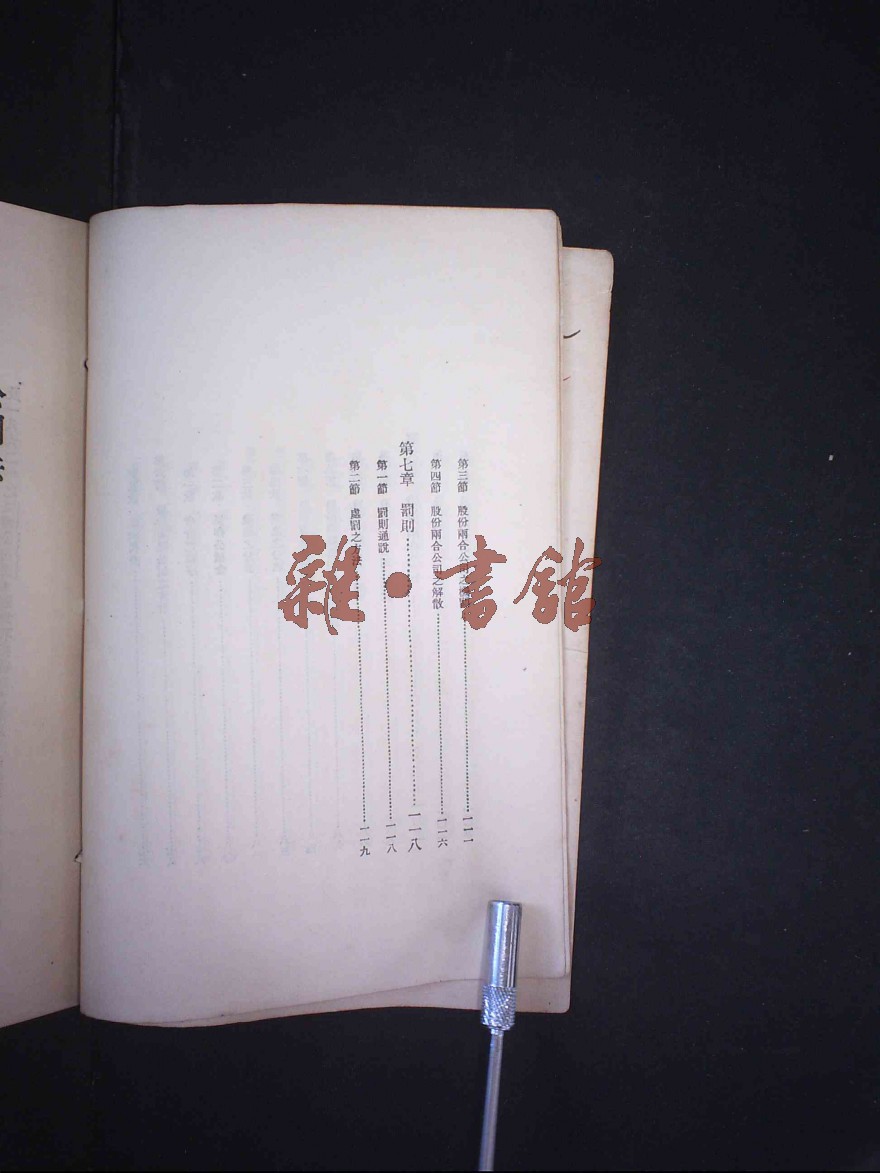 第三節　股份兩合公司…………一一一
第四節　股份兩合公司之解散…………一一六
第七章　罰則…………一一八
第一節　罰則通說…………一一八
第二節　處罰之方法…………一一九
雜·書館